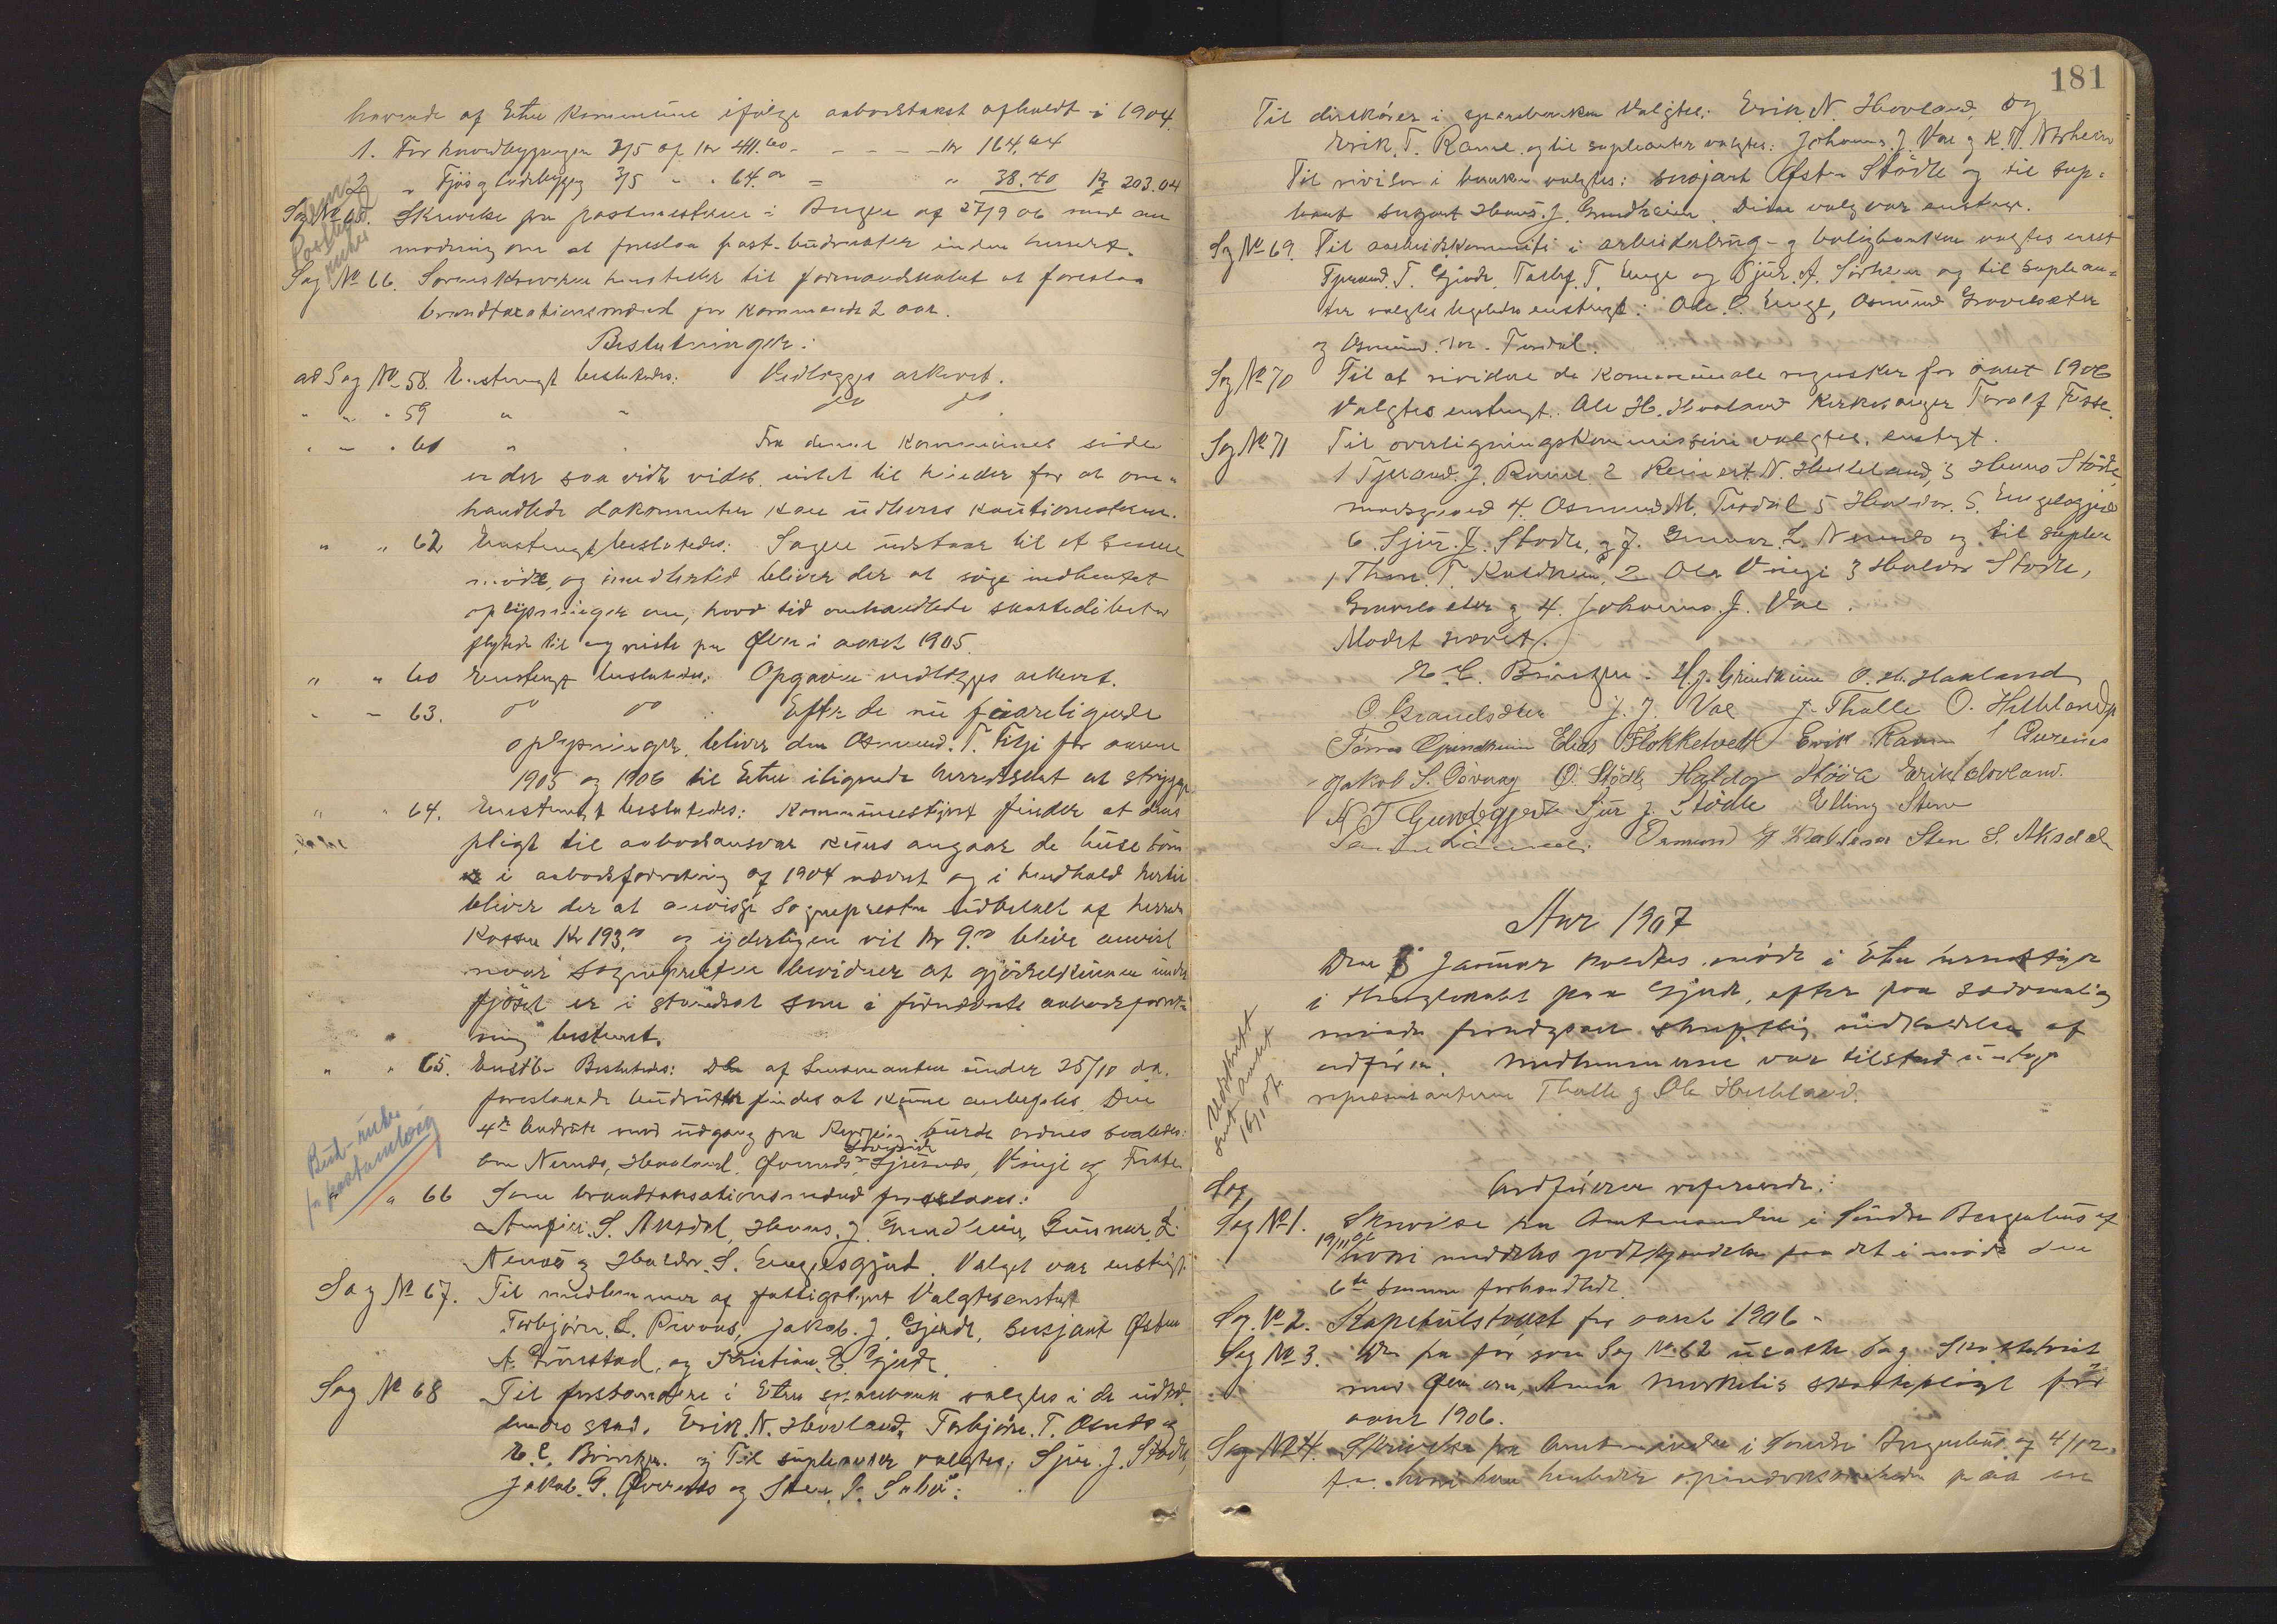 havende af Etne kommune ifølge aabodstakst afholdt i 1904.
1. For hovedbygningen 2/5 af Kr 411.60 - - - - Kr 164.64
2 " Fjøs og ladebygning 3/5 " " 64.00 = " 38.40 Kr 203.04
Sag No 65. Skrivelse fra postmesteren i Bergen af 27/9 06 med an
modning om at foreslaa post-budruter inden herredet.
Sag No 66. Sorenskriveren henstiller til formandskabet at foreslaa
brandtaxationsmænd for kommende 2 aar.
Beslutninger:
ad Sag No 58. Enstemigt besluttedes: Vedlægges arkivet.
" " " 59 " " do do
" " " 61 " " Fra denne kommunes side
er der saa vidt vides intet til hinder for at om-
handlede dokumenter kan udleveres kautionisterne.
" " 62 Enstemigt besluttedes: Sagen udstaar til et senere
møde, og imidlertid bliver der at søge indhentet
oplysninger om, hvad tid omhandlede skattedebitor
flytede til og reiste fra Ølen i aaret 1905.
" " 60 Enstemigt besluttedes: Opgaven vedlægges arkivet.
" " 63. do do : Efter de nu foreliggende
oplysninger bliver den Osmund. T. Silji for aarene
1905 og 1906 til Etne ilignede herredsskat at stryge.
" " 64. Enstemigt besluttedes: Kommunestyret finder at dens
pligt til aabodsansvar kuns angaar de huse som
er i aabodsforretning af 1904 nævnt og i henhold hertil
bliver der at anvise sognepresten udbetalt af herreds
kassen Kr 193.00 og yderligere vil Kr 9.00 blive anvist
naar sognepresten bevidner at gjødselkummen under
fjøset er i standsat som i førnævnte aabodsforret-
ning bestemt.
" " 65. Enst. Besluttedes: De af lensmanden under 25/10 d.a.
foreslaaede budruter findes at kunne anbefales. Den
4de budrute med udgang fra Kyrping burde ordnes saaledes:
om Nernæs, Haaland, Øvernæs, Sjursnæs, Vinje og Frette
Bud-ruter
for postombæring
" " 66 Som brandtaksationsmænd foreslaaes:
Amfin. S. Aksdal, Hans. J. Grindheim, Gunnar. L.
Nernæs og Haldor. S. Engelsgjerd. Valget var enstemigt.
Sag No 67. Til medlemmer af fattigstyret Valgtes enstemigt
Torbjørn. L. , Jakob. J. Gjerde, sersjant Østen
A. Grønstad, og Kristian. E. Gjerde.
Sag No 68 Til forstandere i Etne sparebank valgtes i de udtræ-
dendes sted. Erik. N. Hovland, Torbjørn. T. Osnæs og
E. E. Brinchm. og Til supleanter valgtes; Sjur. J. Stødle,
Jakob. G. Øvernæs og Sten. P. Sæbø.
181
Til direkører i sparebanken Valgtes: Erik. N. Hovland, og
Erik. T. Ravne. og til supleanter valgtes: Johannes. J. Vae og K. N. Norheim
Til revisor i banken valgtes: sersjant Østen Stødle og til sup-
leant sersjant Hans. J. Grindheim. Disse valg var enstem.
Sag No 69. Til arbeidskomite i arbeiderbrug- og boligbanken valgtes enst
Tjerand. T. Gjerde, Tollef. T. Enge og Sjur. A. Sørheim og til suplean-
ter valgtes ligeledes enstemigt: Ole. O. Enge, Osmund Gravelsæter
og Gunnar. Tor. Tesdal.
Sag No 70 Til at revidere de kommunale regnskaber for aaret 1906
Valgtes enstemigt. Ole H. Haaland Kirkesanger Torolf Fosse.
Sag No 71 Til overligningskommission valgtes enstemigt.
1 Tjerand. J. Ravne. 2 Reinert. N. Helleland, 3 Hans Stødle,
4. Osmund M. Tesdal 5 Haldor. S. Engelsgjerd
6. Sjur. J. Stødle, og 7. Gunnar. L. Nernæs og til suplea
1 Thore. T. Kaldheim, 2 Ole Vinje 3 Haldor Stødle,
Gravelsæter og 4. Johannes. J. Vae.
Mødet hævet.
E. E. Brinchm. H. J. Grindheim O. H. Haaland
O. Gravelsæter J. J. Vae J. Thalle O. Helleland
Tørres Grindheim Elias Stokketvedt Erik Ravne J Qvernes
Jakob S. Osvaag O. Stødle Haldor Stööle Erik Hovland.
N T Gundegjerde Sjur J. Stødle Elling Stene
Osmund H Halleson Sten S. Aksdal
Aar 1907
Den 5 Januar holdtes møde i Etne herredstyre
i thinglokalet paa Gjerde, efter paa sædvanlig
maade foregaaet skriftlig indkaldelse af
ordføren. Medlemmerne var tilstede undtagen
repræsentanterne Thalle og Ole Helleland.
Udskrift
sendt amtet
16/1 07.
Sag Ordføreren refererede:
Sag No 1. Skrivelse fra Amtmanden i Søndre Bergenhus af
19/11 06 hvori meddeles godkjendelse paa det i møde den
6te samme forhandlede.
Sag No 2. Kapitulstakst for aaret 1906.
Sag No 3. Den fra før som Sag No 62 udsatte sag Skattetvist
med Ølen om, Anna Markelis skattepligt for
aaret 1906.
Sag No 4. Skrivelse fra Amtmanden i Søndre Bergenhus af 4/12
f.a. hvori han henleder opmærksomheden paa en